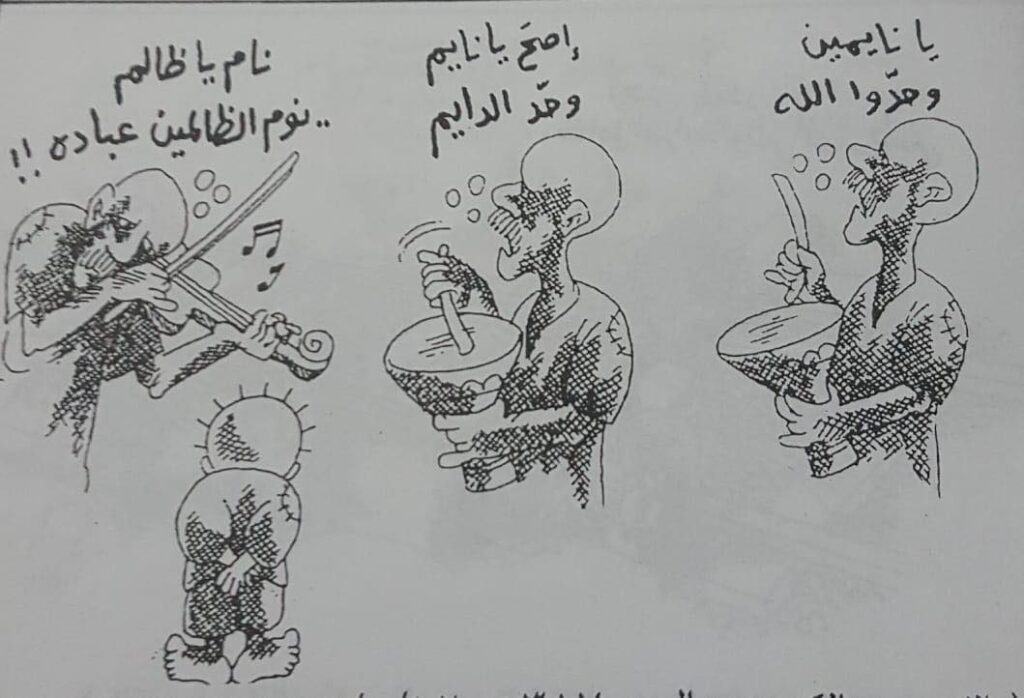 يا نايمين
وحّدوا الله
إصحَ يا نايم
وحّد الدايم
نام يا ظالم
.. نوم الظالمين عباده !!